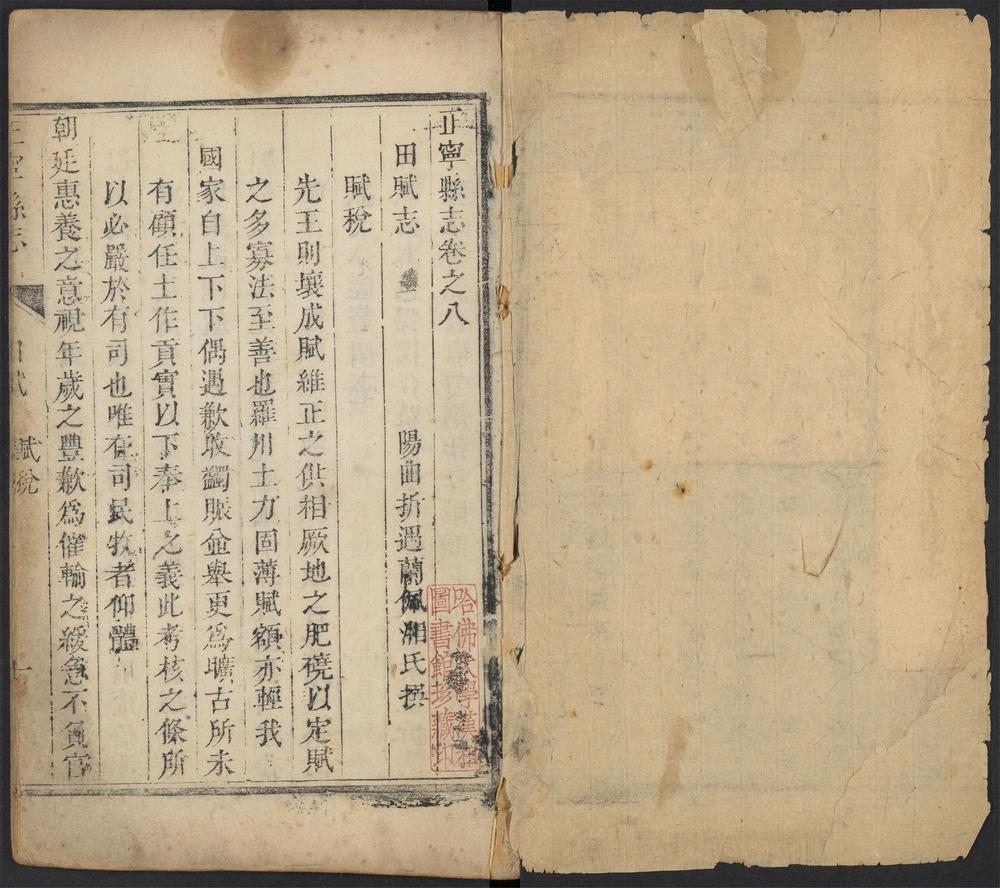 正寧縣志卷之八
田賦志
陽曲折遇蘭佩湘氏撰
賦稅
先王則壤成賦維正之供相厥地之肥磽以定賦
之多寡法至善也羅川土力固薄賦額亦輕我
國家自上下下偶遇歉收蠲賑並舉更爲曠古所未
有顧任土作貢實以下奉上之義此考核之條所
以必嚴於有司也唯在司民牧者仰體
朝廷惠養之意視年歲之豐歉爲催輸之緩急不負官
正寧縣志
田賦
賦稅
哈佛大學漢和
圖書館珍藏印